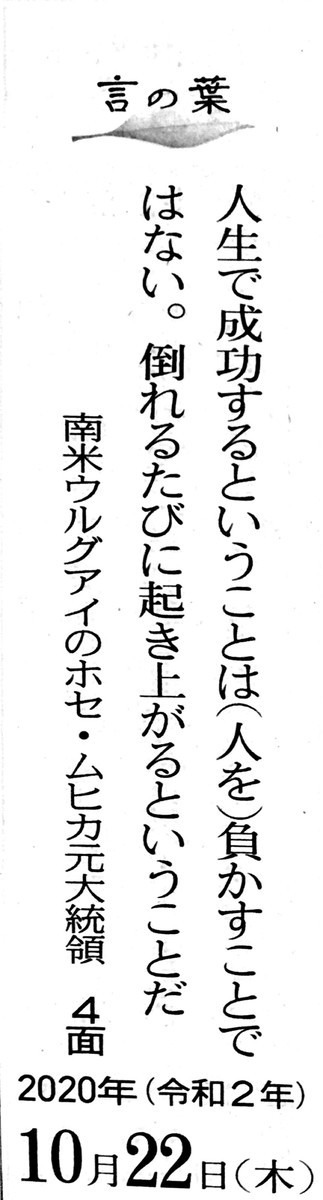 言の葉
人生で成功するということは(人を)負かすことで
はない。倒れるたびに起き上がるということだ
南米ウルグアイのホセ・ムヒカ元大統領 4面
2020年(令和2年)
10月22日(木)